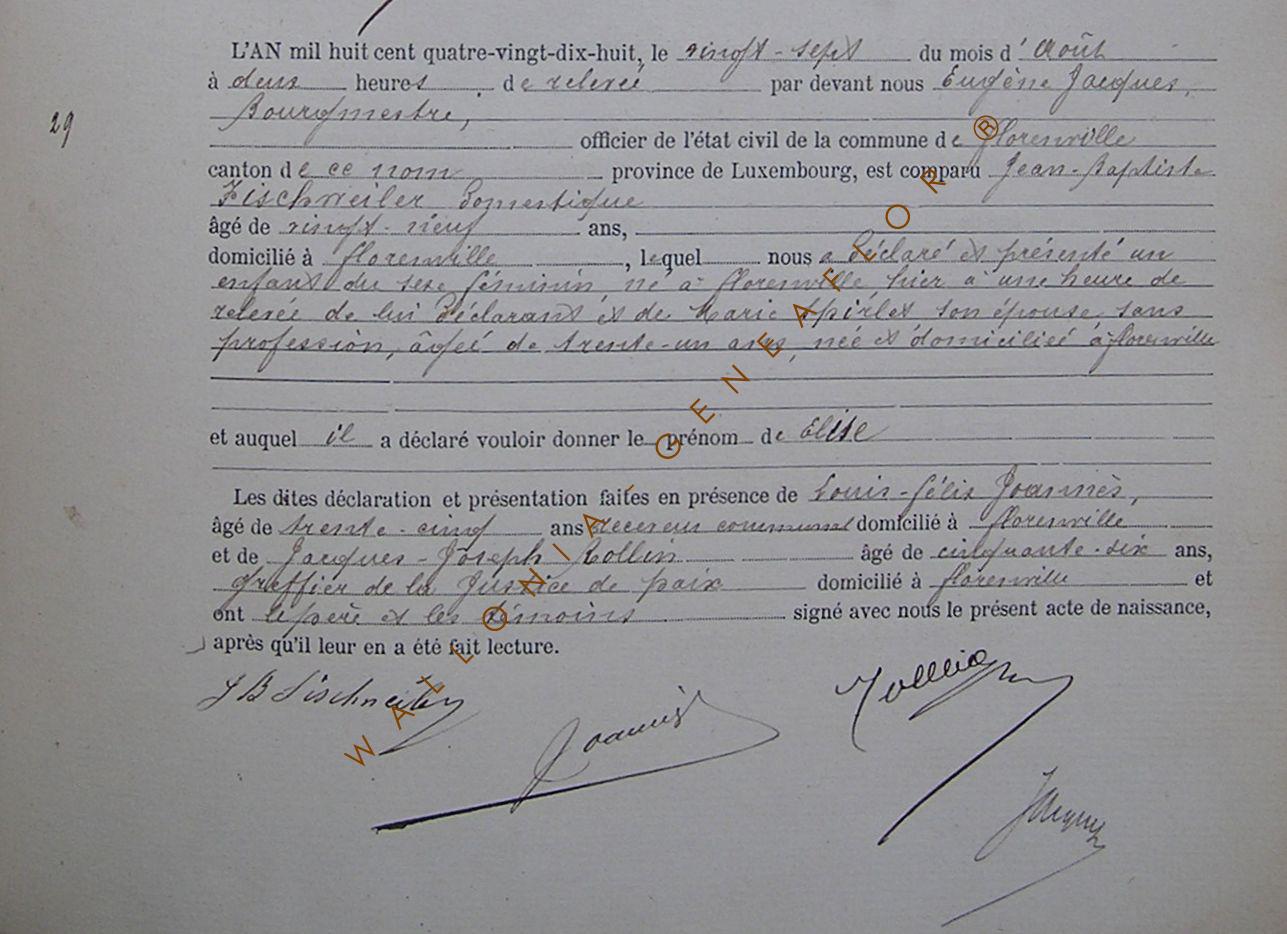 L'AN mil huit cent quatre-vingt-dix-huit, le vingt-sept du mois d'Août
à deux heures de relevée par devant nous Eugène Jacques,
Bourgmestre,
29
officier de l'état civil de la commune de florenville
canton de ce nom province de Luxembourg, est comparu Jean-Baptiste
Fischweiler Domestique
âgé de vingt-neuf ans,
domicilié à florenville, lequel nous a déclaré et présenté un
enfant du sexe féminin né à florenville hier à une heure de
relevée de lui déclarant et de Marie Spirlet son épouse sans
profession, âgée de trente-un ans, née et domiciliée à florenville
et auquel il a déclaré vouloir donner le prénom de Elise
Les dites déclaration et présentation faites en présence de Louis-Félix Joannès,
âgé de trente-cinq ans receveur communal domicilié à florenville
et de Jacques-Joseph Rollin âgé de cinquante-six ans,
greffier de la Justice de paix domicilié à florenville et
ont le père et les témoins signé avec nous le présent acte de naissance,
après qu'il leur en a été fait lecture.
J B Fischweiler
Joannès
Jacques
WALLONIA - GENEAFLOR ®